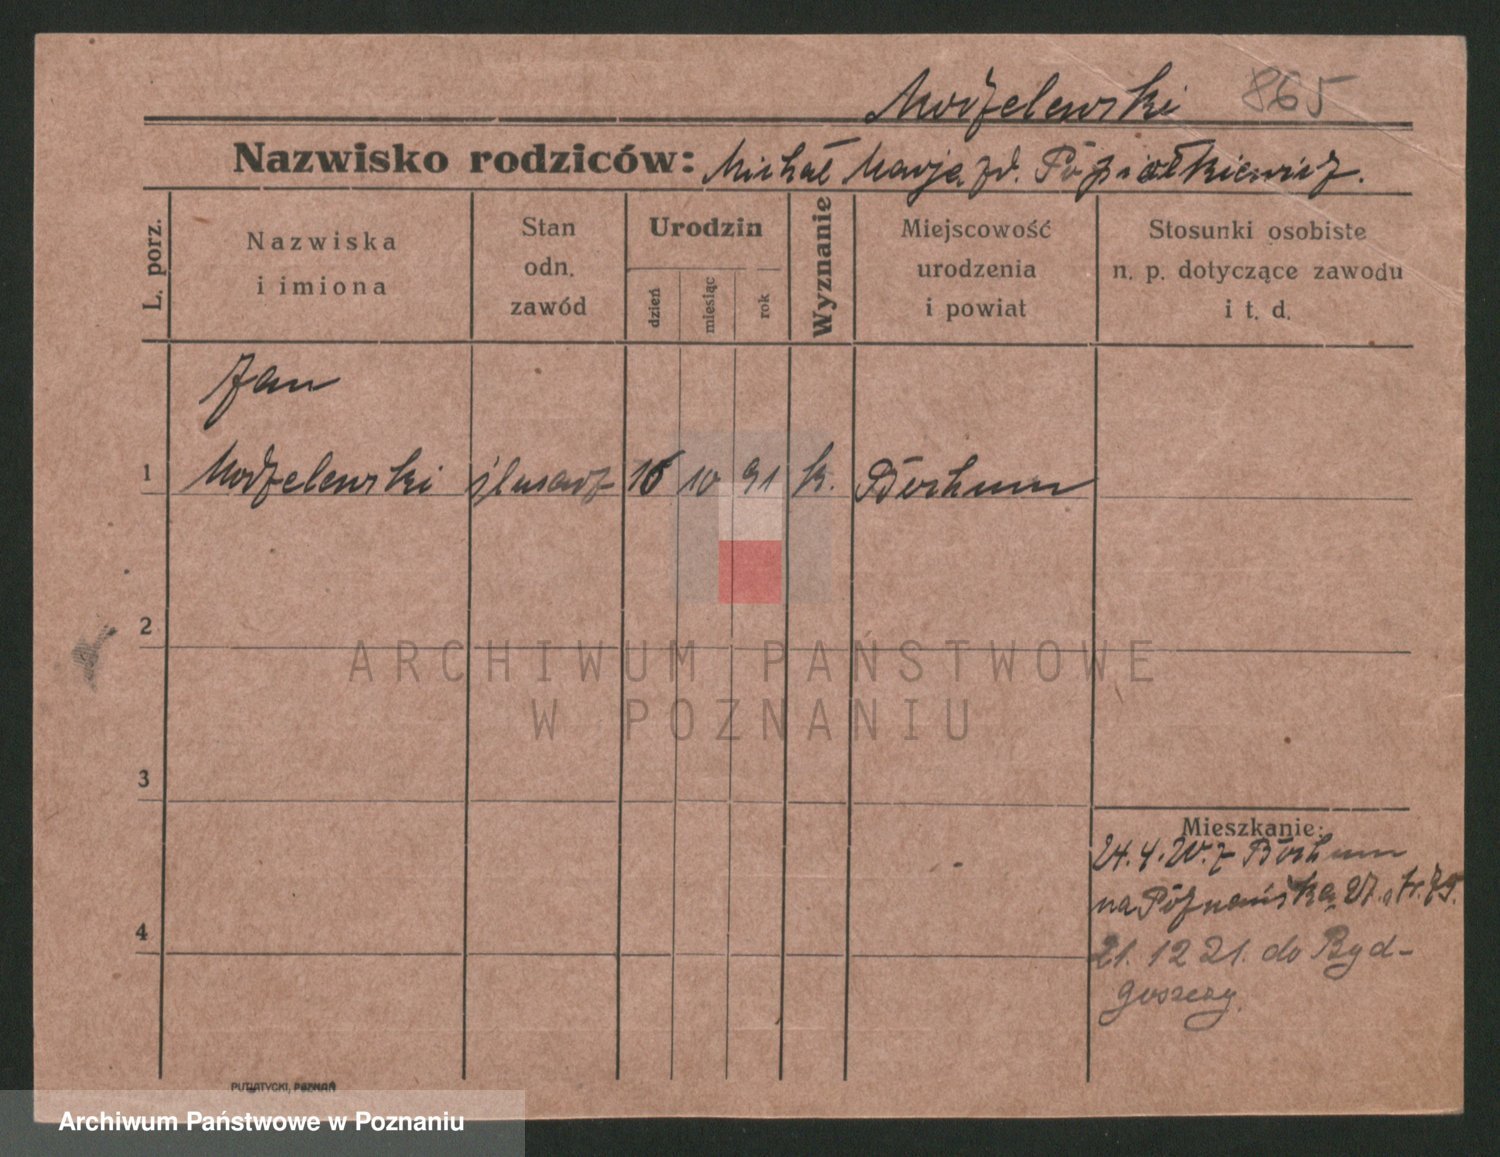 Modzelewski 865
Nazwisko rodziców: Michał Marja zd.
L. porz.
Nazwiska
i imiona
Stan
odn.
zawód
Urodzin
dzień
miesiąc
rok
Wyznanie
Miejscowość
urodzenia
i powiat
Stosunki osobiste
n. p. dotyczące zawodu
i t. d.
Jan
1 Modzelewski ślusarz 10 91 k. Bochum
2
3
4
Mieszkanie:
24. 4. 20. z Bochum
na Poznańską 27.
21. 12 21. do Byd-
goszczy.
PUTIATYCKI, POZNAŃ
ARCHIWUM PAŃSTWOWE
W POZNANIU
Archiwum Państwowe w Poznaniu